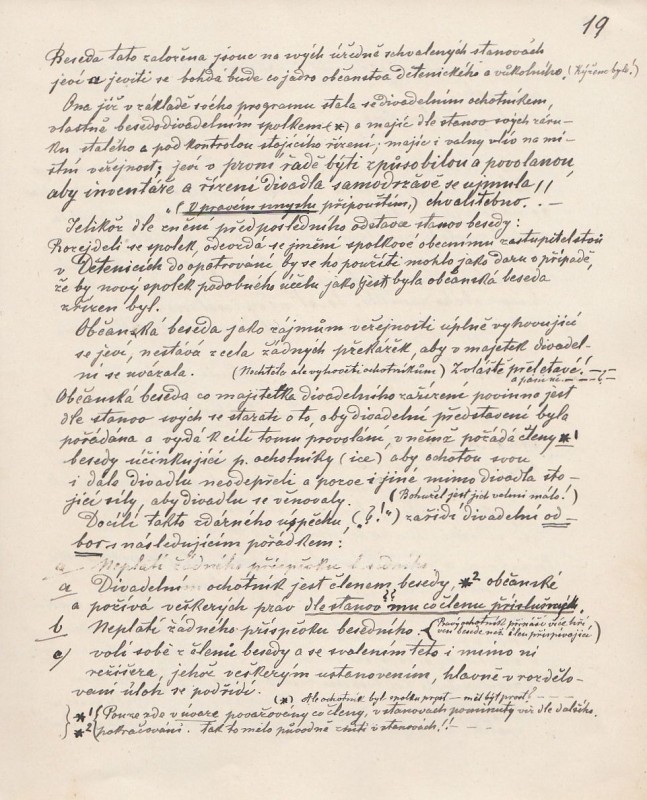 19
Beseda tato založena jsouc na svých úředně schválených stanovách
jeví a jeviti se bohdá bude co jádro občanstva dětenického a vůkolního. (Kýžem bylo!)
Ona již v základě svého programu stala se divadelním ochotníkem,
vlastně besedodivadelním spolkem (*) a majíc dle stanov svých záru-
ku stálého a pod kontrolou stojícího řízení; majíc i valný vliv na mí-
stní veřejnost; jeví v první řadě býti způsobilou a povolanou
aby inventáře a řízení divadla samodržávě se ujmula!!
"(V pravém smyslu připouštím,) chvalitebno. . —
Jelikož dle znění předposledního odstavce stanov besedy:
Rozejdeli se spolek, odevzdá se jmění spolkové obecnímu zastupitelstvu
v Dětenicích do opatrování by se ho použíti mohlo jako daru v případě,
že by nový spolek podobného účelu jako jest byla občanská beseda
zřízen byl.
Občanská beseda jako zájmům veřejnosti úplně vyhovující
se jeví, nestává zcela žádných překážek, aby v majetek divadel-
ní se uvázala. (Nechtělo ale vyhověti ochotníkům) Zvláště přeletavé! —
a pánní — — —
Občanská beseda co majitelka divadelního zařízení povinna jest
dle stanov svých se starati o to, aby divadelní představení byla
pořádána a vydá k cíli tomu provolání, v němž požádá členy *1
besedy účinkující p. ochotníky (ice) aby ochotou svou
i dále divadlu neodepřeli a pozve i jiné mimo divadla sto-
jící síly, aby divadlu se věnovaly. (Bohužel jest jich velmi málo!)
Docílí takto zdárného úspěchu, („?!") zařídí divadelní od-
bor s následujícím pořádkem:
a Neplatí žádného příspěvku besedního
a Divadelním ochotník jest členem besedy, *2 občanské
a požívá veškerých práv dle stanov mu co členu příslušných.
b Neplatí žádného příspěvku besedního. (Pravý ochotník přináší více tvří
c) volí sobě z členů besedy a se svolením této i mimo ni
režiséra, jehož veškerým ustanovením, hlavně v rozdělo-
vání úloh se podřídí.
(*) Ale ochotník byl spolku prost — měl být prost? — — —
*1 (Pouze zde v úvaze považovány co členy, v stanovách pominuty viz dle dalšího.
*2 (pokračování. Tak to mělo původně zníti v stanovách!! — —